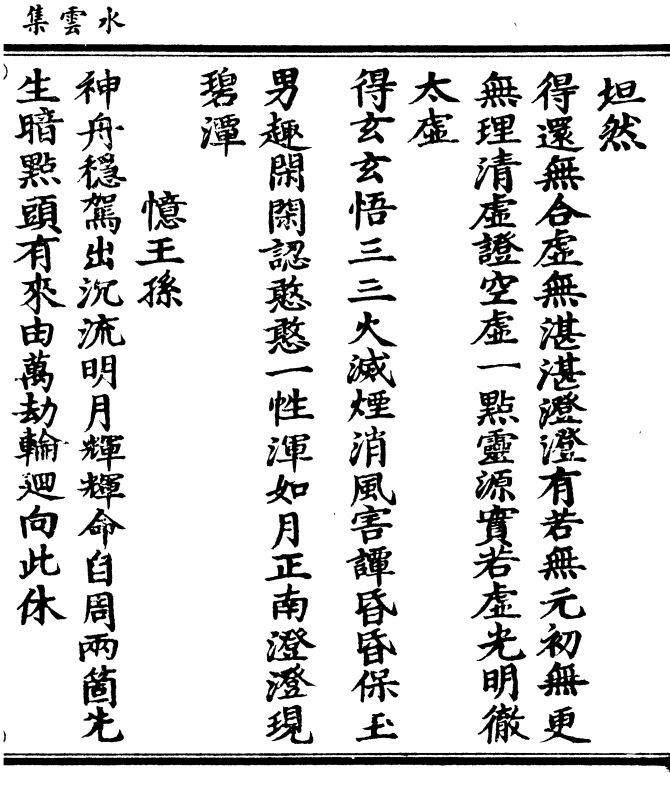 水雲集
坦然
得還無合虛無湛湛澄澄有若無元初無更
無理清虛證空虛一點靈源實若虛光明徹
太虛
得玄玄悟三三火滅煙消風害譚昏昏保玉
男趣閑閑認憨憨一性渾如月正南澄澄現
碧潭
憶王孫
神舟穩駕出沉流明月輝輝命自周兩箇先
生暗點頭有來由萬劫輪迴向此休